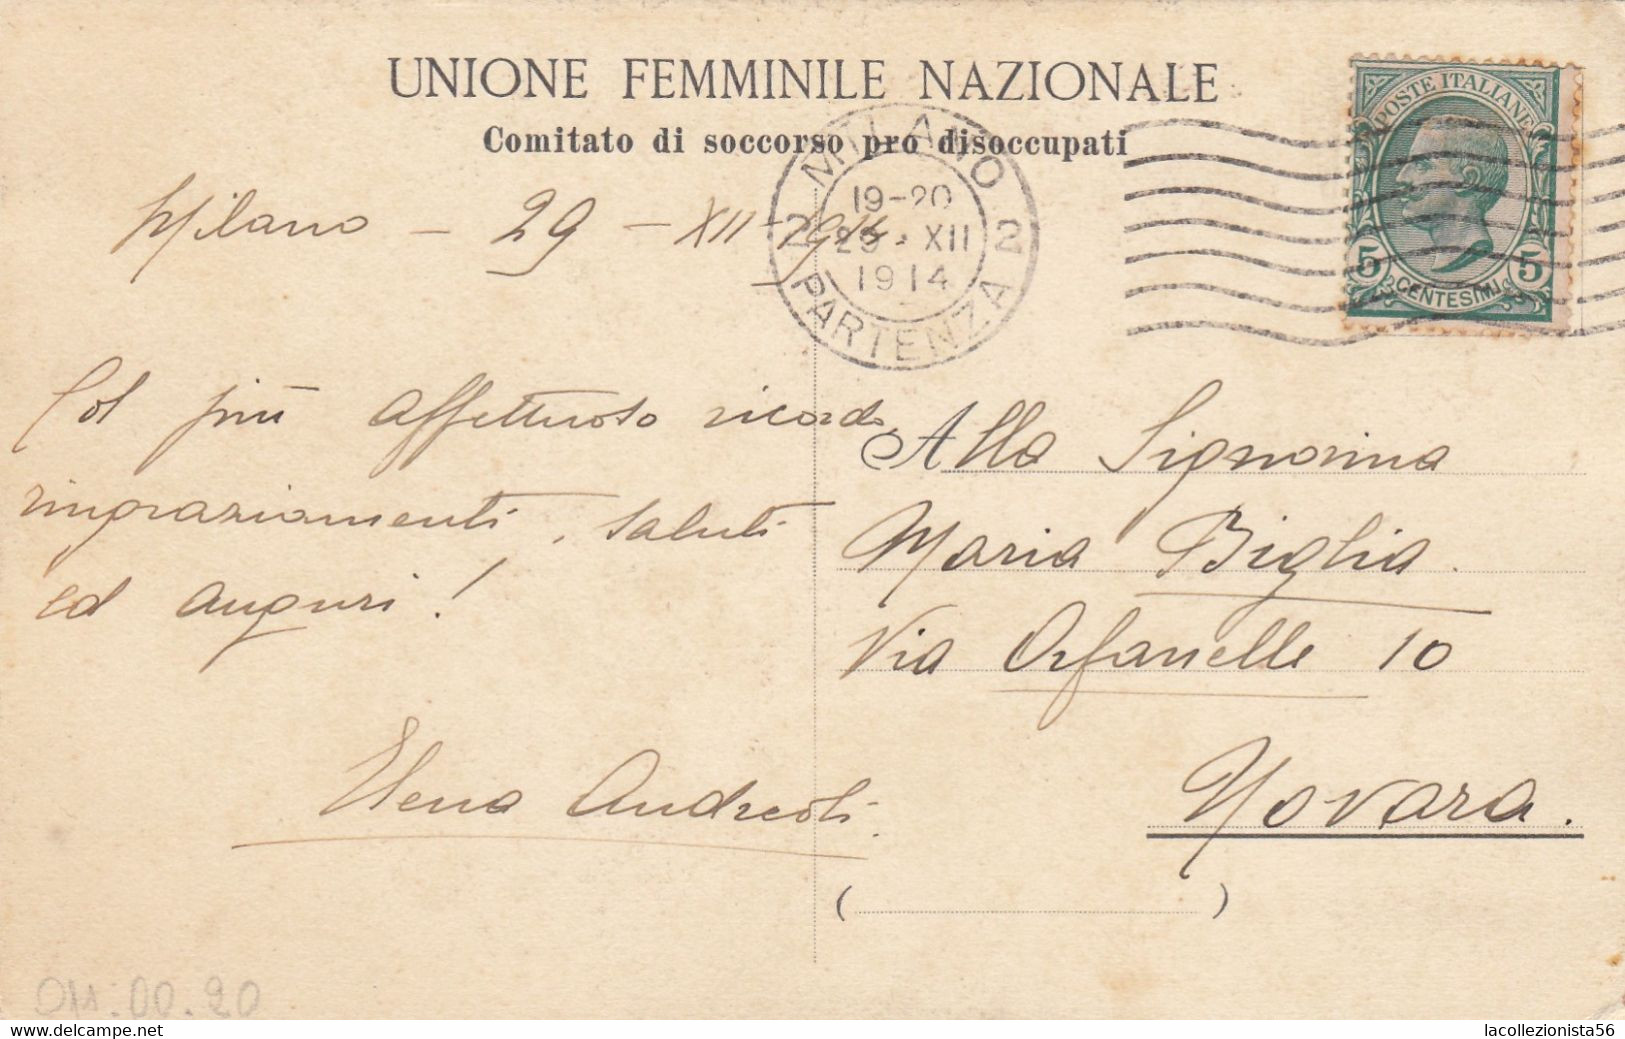 UNIONE FEMMINILE NAZIONALE
Comitato di soccorso pro disoccupati
POSTE ITALIANE
5 5
CENTESIMI
MILANO
19-20
2 29. XII 2
1914
PARTENZA
Milano - 29 - XII - 1914
Col più affettuoso ricordo,
ringraziamenti, saluti
ed auguri!
Elena Andreoli.
Alla Signorina
Maria Biglia.
Via Orfanelle 10
Novara.
( )
www.delcampe.net
lacollezionista56